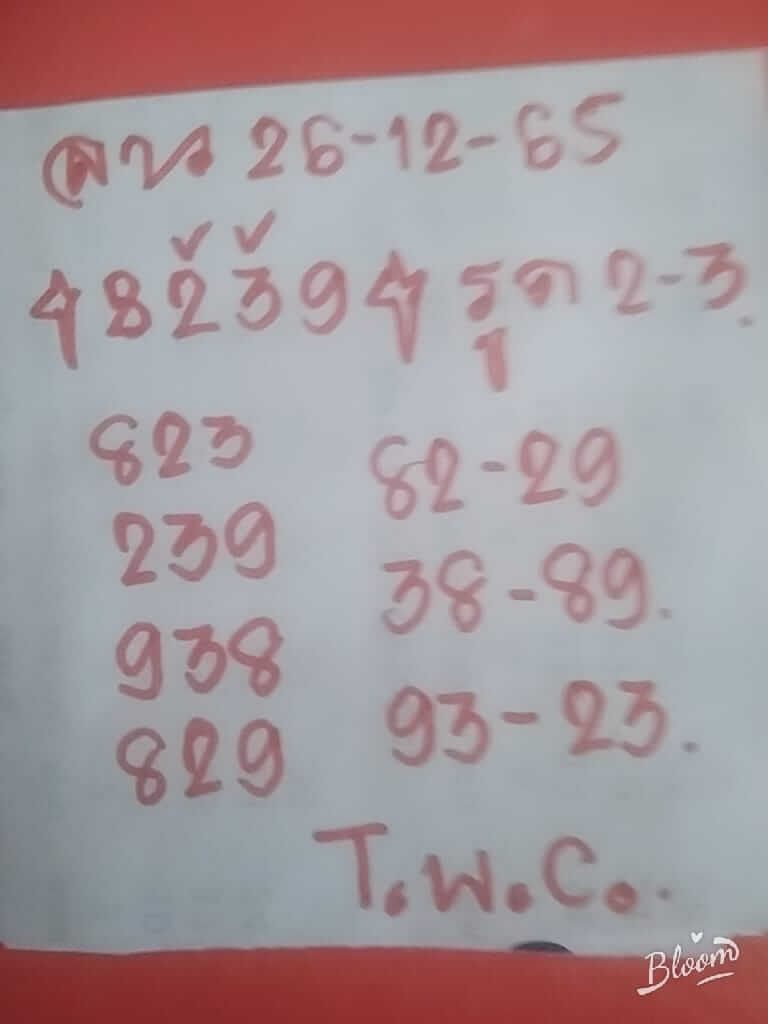 ลาว 26-12-65
8239 รูด 2-3.
823 82-29
239 38-89.
938 93-23.
829
T.W.C.
Bloom